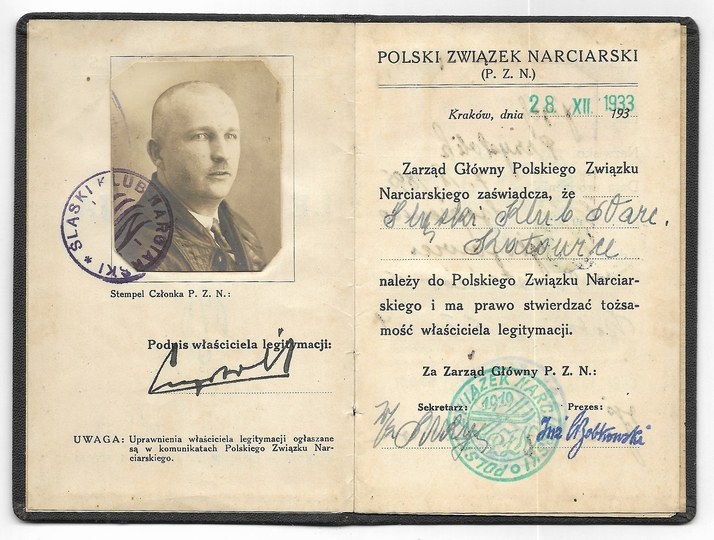 ŚLĄSKI KLUB NARCIARSKI
Stempel Członka P. Z. N.:
Podpis właściciela legitymacji:
UWAGA: Uprawnienia właściciela legitymacji ogłaszane
są w komunikatach Polskiego Związku Nar-
ciarskiego.
POLSKI ZWIĄZEK NARCIARSKI
(P. Z. N.)
Kraków, dnia 28 XII. 1933
193
Zarząd Główny Polskiego Związku
Narciarskiego zaświadcza, że
Śląski Klub Narc.
Katowice
należy do Polskiego Związku Narciar-
skiego i ma prawo stwierdzać tożsa-
mość właściciela legitymacji.
Za Zarząd Główny P. Z. N.:
Sekretarz: Prezes:
1919